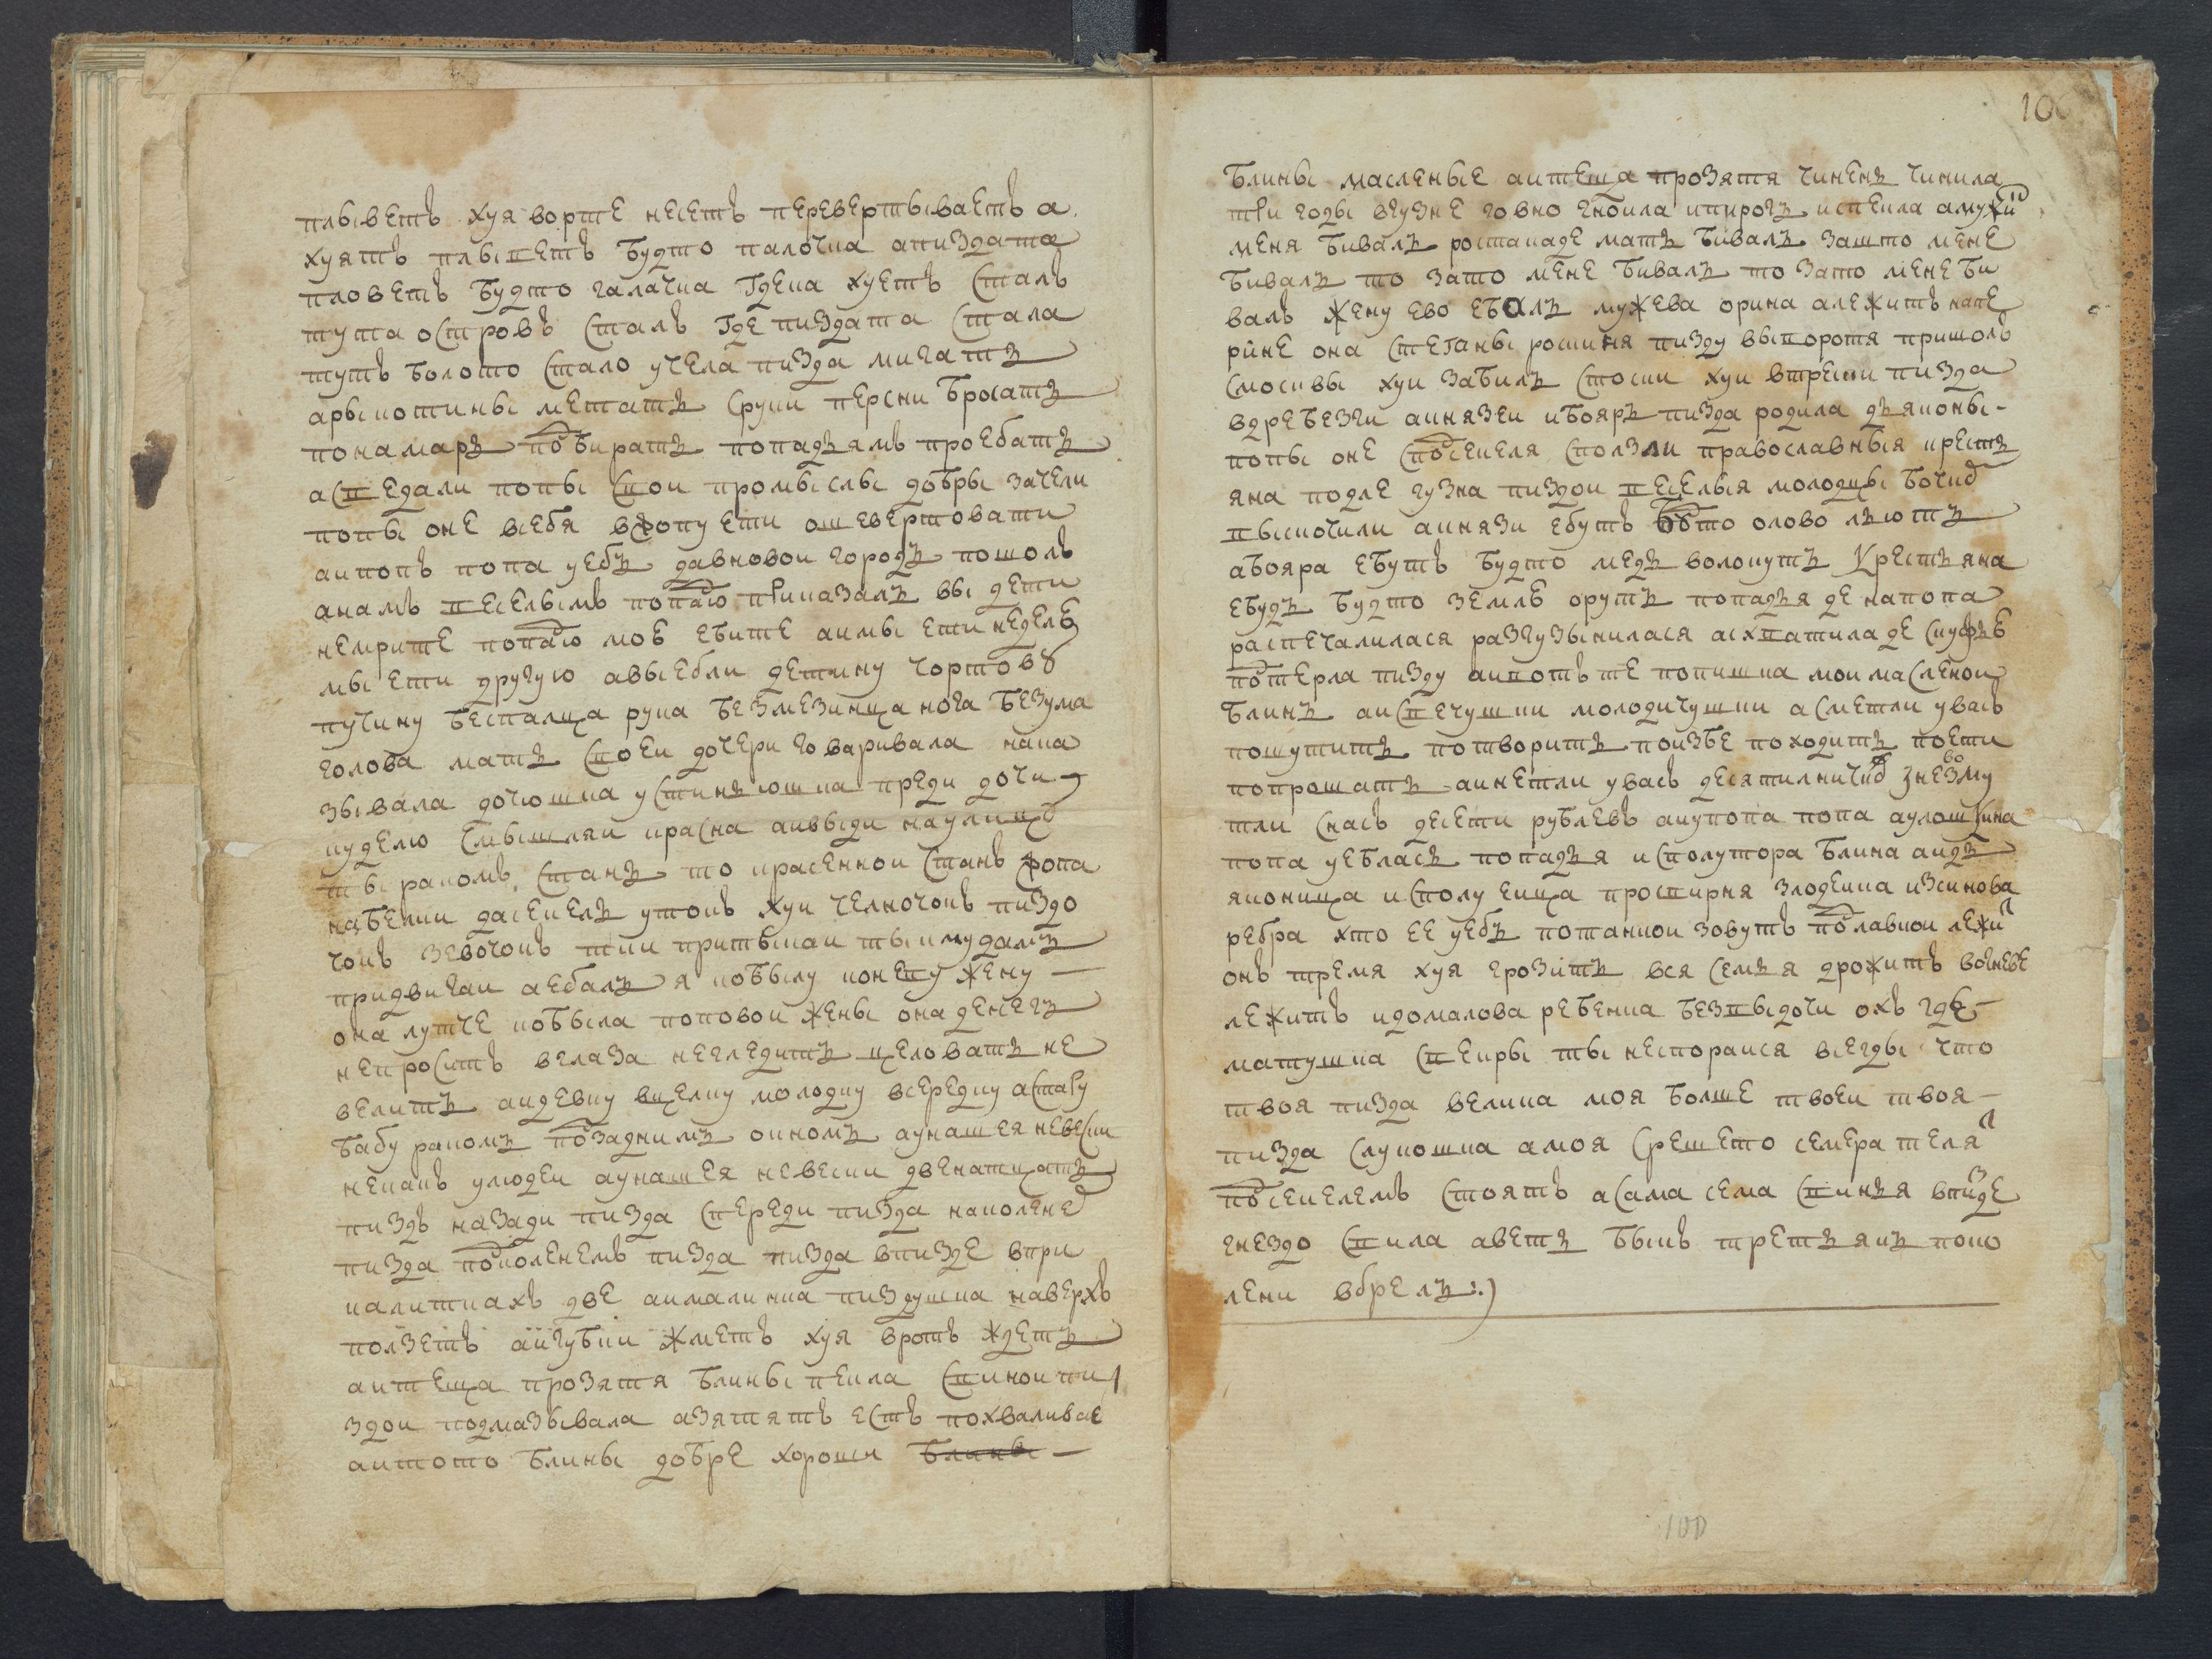 плыветъ хуя ворте несетъ перевертываетъ а
хуятъ плыветъ будто палочка апиздата
пловетъ будто галачка Гдека хуетъ сталъ
тута островъ сталъ Где пиздата стала
тутъ болото стало учела пизда мигать
арыкотины метать сруки персни бросать
понамарь побирать попадьямъ проебать
асведали попы свои промыслы добры зачели
попы оне всебя вжопу ети ошевертовати
аипопъ попа уебъ давновои городъ пошолъ
анамъ веселымъ попадю приказалъ вы дети
немрите попадю моѣ ебите аимы ети неделѣ
мы ети другую авыебли детину чортовꙋ
пучину беспалца рука безмезинца нога безума
голова мать своеи дочери говаривала нака
зывала дочюшка устинъюшка преди дочи
куделю смышляи красна аивыди наулицꙋ
ты ракомъ стань то красеннои станъ жопа
набелки дасекель утокъ хуи челночокъ пиздо
чокъ зевочокъ тки притыкаи тыкмудамъ
придвигаи аебалъ я кобылу коневу жену
она лутче кобыла поповои жены она денегъ
непроситъ вглаза неглядитъ целовать не
велитъ аидевку вщелку молодку всередку астару
бабу ракомъ позаднимъ окномъ аунашея невески
некакъ улюдеи аунашея невески двенатцать
пиздъ назади пизда спереди пизда наколене
пизда поколенемъ пизда пизда впизде впри
калиткахъ две аималинка пиздушка наверхъ
ползетъ аигубки жметъ хуя вротъ ждетъ
аитеща прозятя блины пекла свинои пи
здои подмазывала азятятъ естъ похваливае
аитото блины добре хороши блины
106
блины масленые аитеща прозятя чинень чинила
три годы вгузне говно гноила ипирогъ испекла амужи
меня бивалъ ростакаде мать бивалъ зашто мене
бивалъ то зато мене бивалъ то зато мене би
валъ жену ево ебалъ мужева орина алежитъ напе
рине она стеганы рошикя пизду выворотя пришолъ
смосквы хуи забилъ стоски хуи втрески пизда
вдребезги аикязеи ибояръ пизда родила дъяконы
попы оне посекеля сползли православныя крестъ
яна подле гузна пиздои веселыя молодцы бочкꙋ
выскочили аикнязи ебутъ бꙋто олово льютъ
абояра ебутъ будто медъ волокутъ крестьяна
ебудъ будто землѣ орутъ попадья де напопа
распечалилася разгузынилася асхватила де скуфьѣ
потерла пизду аивотъ те попишка мои масленои
блинъ аисвечушки молодичушки асметли увасъ
пошутить потворить поизбе походить поети
попрошать аинетли увасъ десятилничкꙋ знезму
тли снасъ десети рублевъ аиупопа попа аулошкина
попа уебласъ попадья исполутора блина аидъ
яконица исполу еица просвирня злодеика изсинова
ребра хто ее уебъ потаннои зовутъ полавкои лежи
онъ тремя хуя грозитъ вся семья дрожитъ вогневе
лежитъ идомалова ребенка безвыдочи охъ гдѣ
матушка свекры ты неспорайся всегды что
твоя пизда велика моя болше твоеи твоя
пизда слукошка амоя срешето семера теля
посекелемъ стоятъ асама сема свинья впизде
гнездо свила аветъ быкъ третьякъ поко
лени вбрелъ:)
100